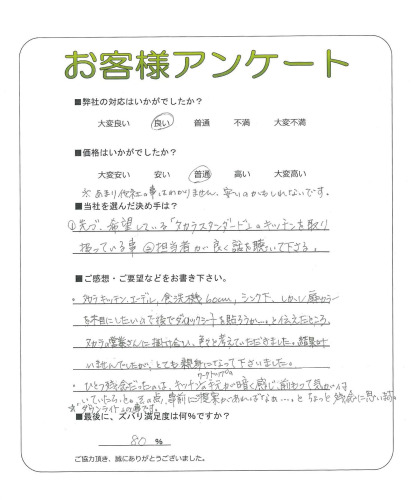 お客様アンケート
■弊社の対応はいかがでしたか?
大変良い 良い 普通 不満 大変不満
■価格はいかがでしたか?
大変安い 安い 普通 高い 大変高い
※あまり他社の事はわかりません、安いのかもしれないです。
■当社を選んだ決め手は?
①先づ、希望している「タカラスタンダード」のキッチンを取り
扱っている事 ②担当者が良く話を聴いて下さる。
■ご感想・ご要望などをお書き下さい。
・タカラキッチン、エーデル、食洗機60cm、シンク下、しかし扉カラー
を木目にしたいので後でダイノックシートを貼ろうか…。と伝えたところ、
タカラの営業さんに掛け合い、色々と考えていただきました。結果は
いませんでしたが、とても親身になって下さいました。
・ひとつ残念だったのは、キッチンの手元が暗く感じ、前もって気が付
いていたら、と。その点、事前に提案があればなぁ…。とちょっと残念に思います。
※ダウンライトの事です。
■最後に、ズバリ満足度は何%ですか?
80 %
ご協力頂き、誠にありがとうございました。